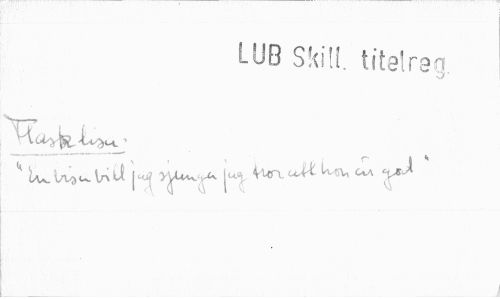 LUB Skill. titelreg.
Flask lisa.
"En visa vill jag sjunga jag tror att hon är god"